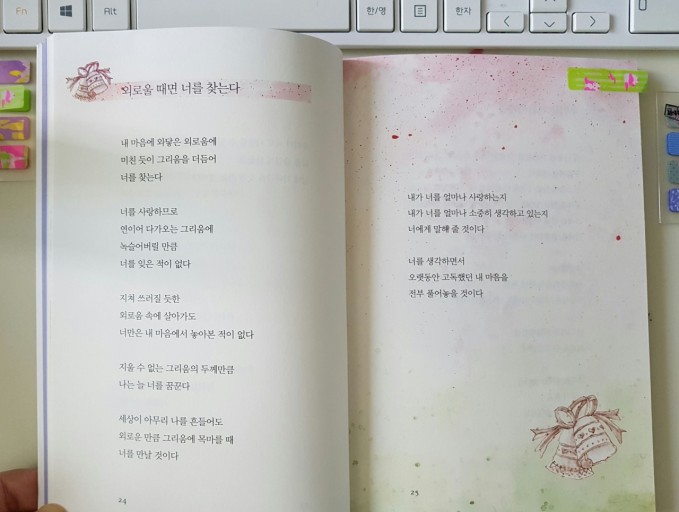 Fn
Alt
한/영
한자
외로울 때면 너를 찾는다
내 마음에 와닿은 외로움에
미친 듯이 그리움을 더듬어
너를 찾는다
너를 사랑하므로
연이어 다가오는 그리움에
녹슬어버릴 만큼
너를 잊은 적이 없다
지쳐 쓰러질 듯한
외로움 속에 살아가도
너만은 내 마음에서 놓아본 적이 없다
지울 수 없는 그리움의 두께만큼
나는 늘 너를 꿈꾼다
세상이 아무리 나를 흔들어도
외로운 만큼 그리움에 목마를 때
너를 만날 것이다
24
내가 너를 얼마나 사랑하는지
내가 너를 얼마나 소중히 생각하고 있는지
너에게 말해 줄 것이다
너를 생각하면서
오랫동안 고독했던 내 마음을
전부 풀어놓을 것이다
25